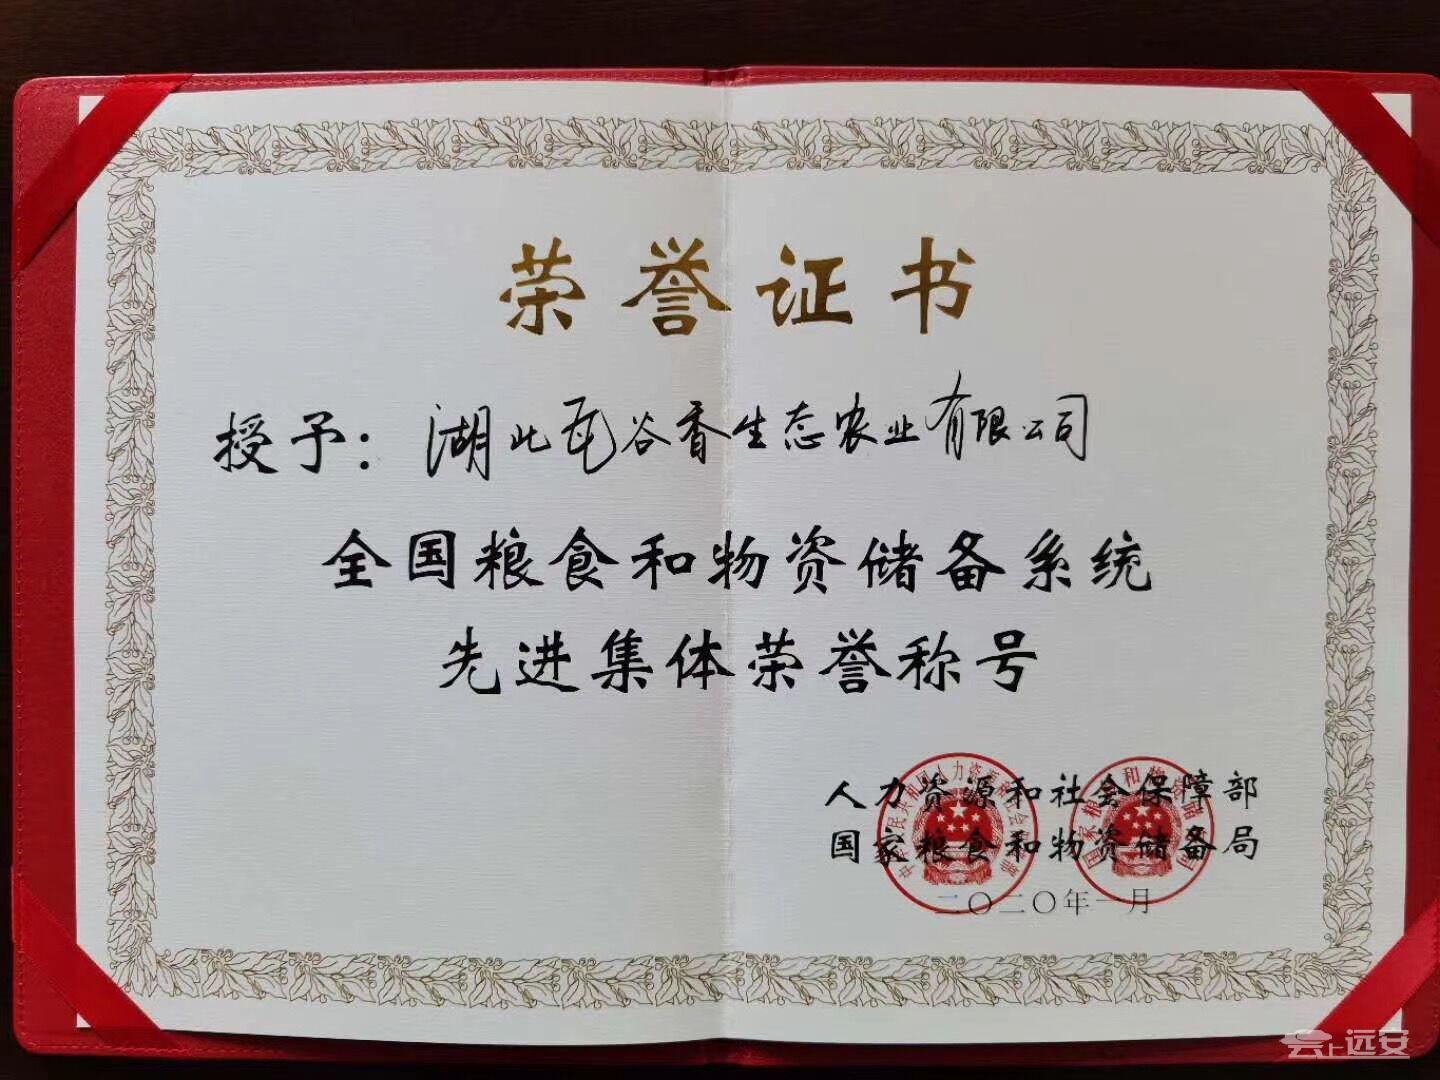 荣誉证书
授予：湖北瓦谷香生态农业有限公司
全国粮食和物资储备系统
先进集体荣誉称号
人力资源和社会保障部
国家粮食和物资储备局
二〇二〇年一月
云上远安